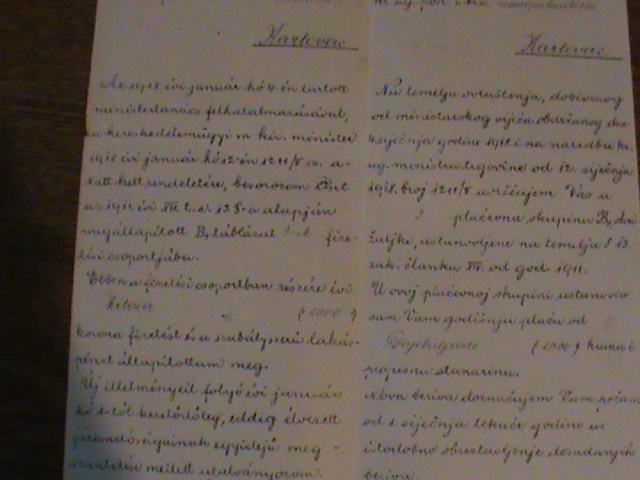 Karlovac
Az 1918 évi január hó 4-én tartott
ministertanács felhatalmazásával,
a kereskedelemügyi m. kir. minister
1918 évi január hó 12-én 1211/8 sz. a-
latt kelt rendeletére, besorozom Önt
az 1911 évi XV. t. c. 13. §-a alapján
megállapított B, táblázat 3-ik fize-
tési csoportjába.
Ebben a fizetési csoportban részére évi
Kétezer (2000)
korona fizetést és a szabályszerű lakás-
pénzt állapítottam meg.
Új illetményeit folyó évi január
hó 1-től kezdődőleg, eddig élvezett
járandóságainak egyidejű meg-
szüntetése mellett utalványozom.
Karlovac
Na temelju ovlaštenja, dobivenog
od ministarskog vijeća obdržanog dne
4 siječnja godine 1918 i na naredbu kr.
ug. ministra trgovine od 12. siječnja
1918. broj 1211/8 uvršćujem Vas u
3 plaćevnu skupinu B,
ustanovljene na temelju § 13.
zak. članka XV. od god. 1911.
U ovoj plaćevnoj skupini ustanovio
sam Vam godišnju plaću od
(2000) kruna i
propisnu stanarinu.
Nova beriva doznačujem Vam počam
od 1 siječnja tekuće godine uz
istodobno obustavljenje dosadanjih
beriva